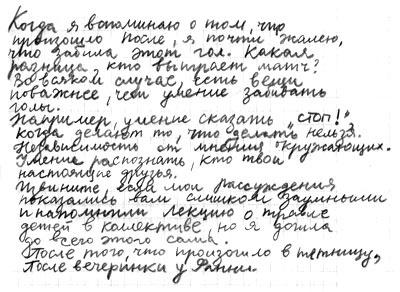 Когда я вспоминаю о том, что
произошло после, я почти жалею,
что забила этот гол. Какая
разница, кто выиграет матч?
Во всяком случае, есть вещи
поважнее, чем умение забивать
голы.
Например, умение сказать „стоп!",
когда делают то, что делать нельзя.
Независимость от мнения окружающих.
Умение распознать, кто твои
настоящие друзья.
Извините, если мои рассуждения
показались вам слишком заумными
и напомнили лекцию о травле
детей в коллективе, но я дошла
до всего этого сама.
После того, что произошло в пятницу,
после вечеринки у Фанни.